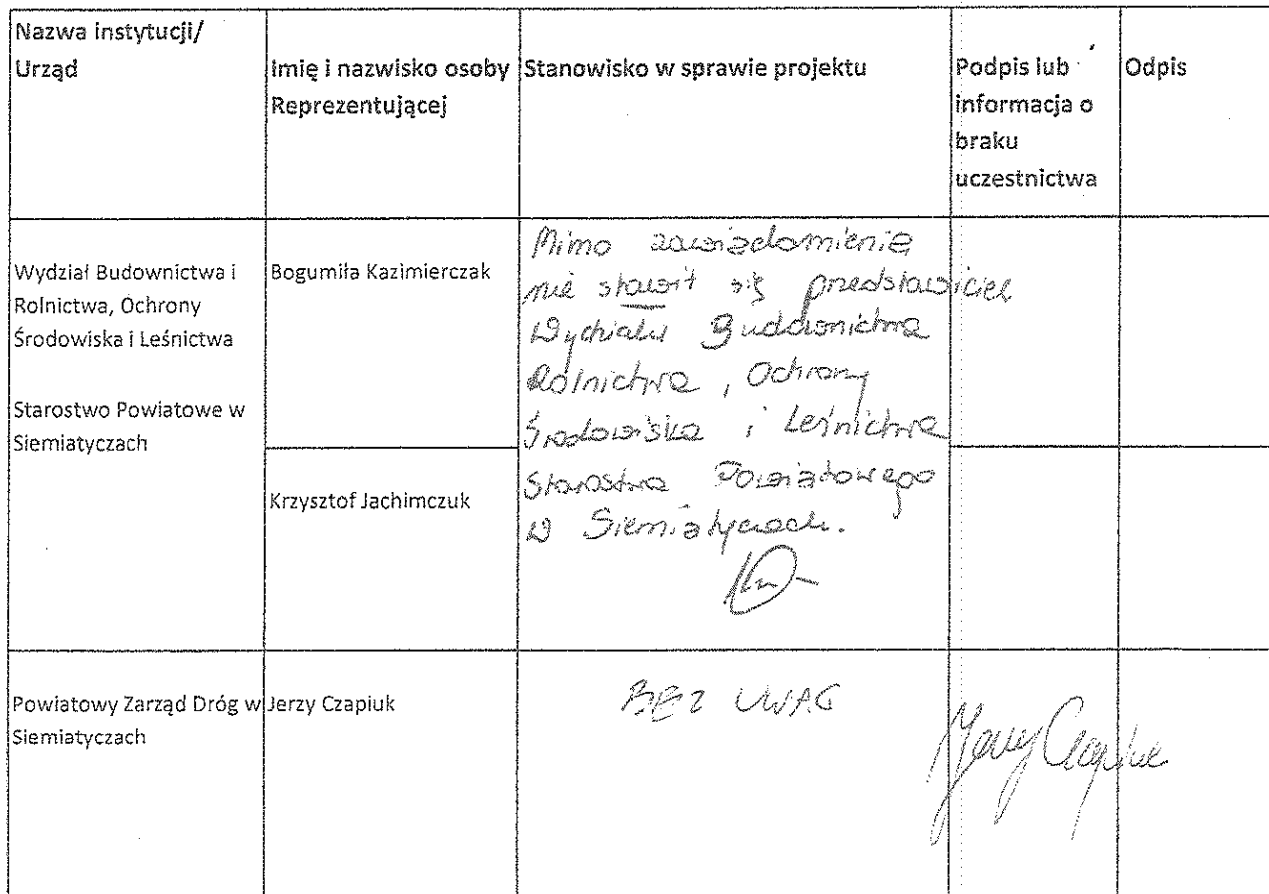 Nazwa instytucji/
Urząd
Imię i nazwisko osoby
Reprezentującej
Stanowisko w sprawie projektu
Podpis lub
informacja o
braku
uczestnictwa
Odpis
Wydział Budownictwa i
Rolnictwa, Ochrony
Środowiska i Leśnictwa
Starostwo Powiatowe w
Siemiatyczach
Bogumiła Kazimierczak
Krzysztof Jachimczuk
Mimo zawiadomienia
nie stawił się przedstawiciel
Wydziału Budownictwa
Rolnictwa, Ochrony
Środowiska i Leśnictwa
Starostwa Powiatowego
w Siemiatyczach.
Powiatowy Zarząd Dróg w
Siemiatyczach
Jerzy Czapiuk
BEZ UWAG
Jerzy Czapiuk